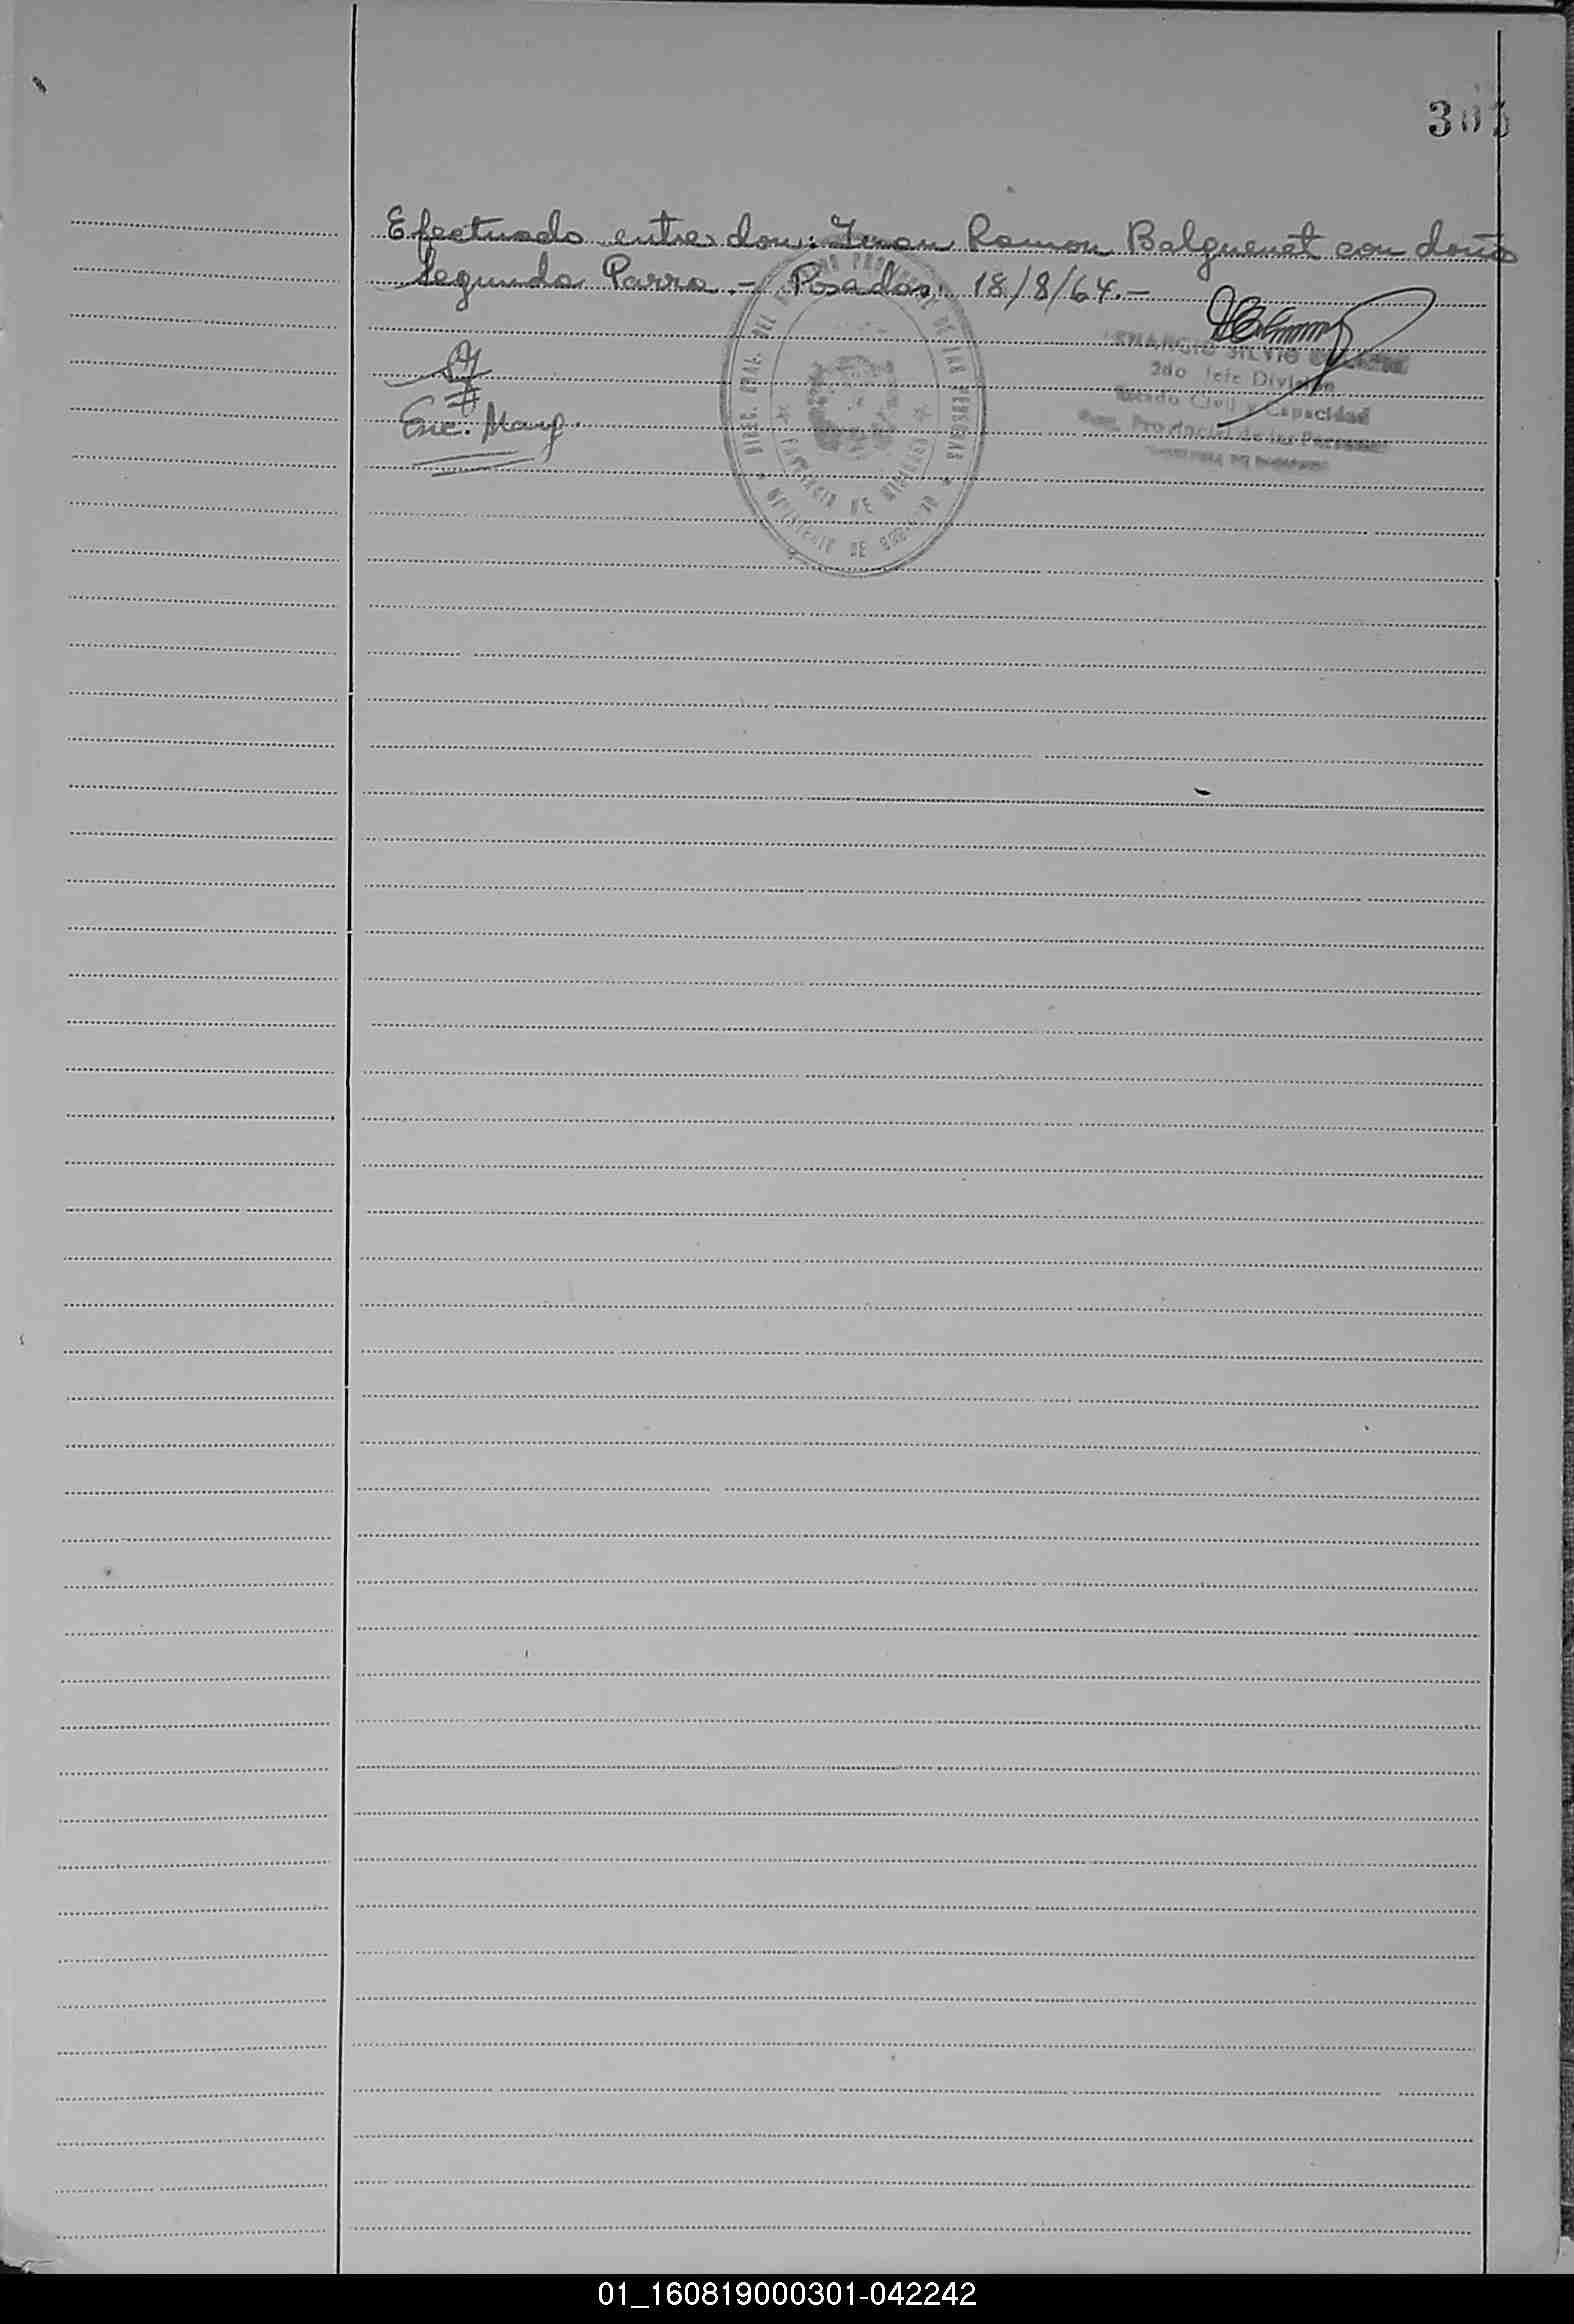 Efectuado entre don: Juan Ramon Balguenet con doña
Segunda Parra.- Posadas, 18/8/64.-
SILVIO
2do Jefe División
Estado Civil y Capacidad
Reg. Provincial de las Personas
Enc. Marg.
DIREC. GRAL. DEL REGISTRO PROVINCIAL DE LAS PERSONAS
PROVINCIA DE MISIONES
MINISTERIO DE GOBIERNO
01_160819000301-042242